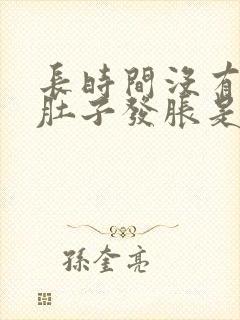 長時間沒有
肚子發脹是
孫奎亮